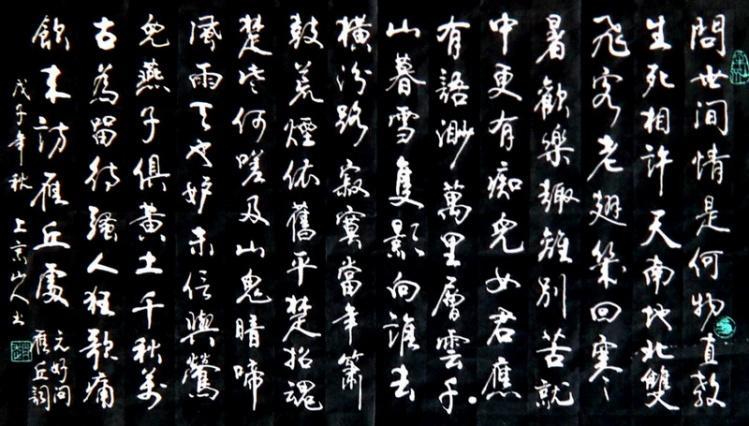 問世间情是何物直教
生死相許天南地北雙
飛客老翅幾回寒々
暑歡樂趣離別苦就
中更有痴兒女君應
有語渺萬里層雲千
山暮雪隻影向誰去
橫汾路寂寞當年簫
鼓荒煙依舊平楚招魂
楚些何嗟及山鬼暗啼
風雨天也妒未信與鶯
兒燕子俱黃土千秋萬
古為留待騷人狂歌痛
飲来訪雁丘處
元好问
雁丘詞
戊子年秋 上京山人书